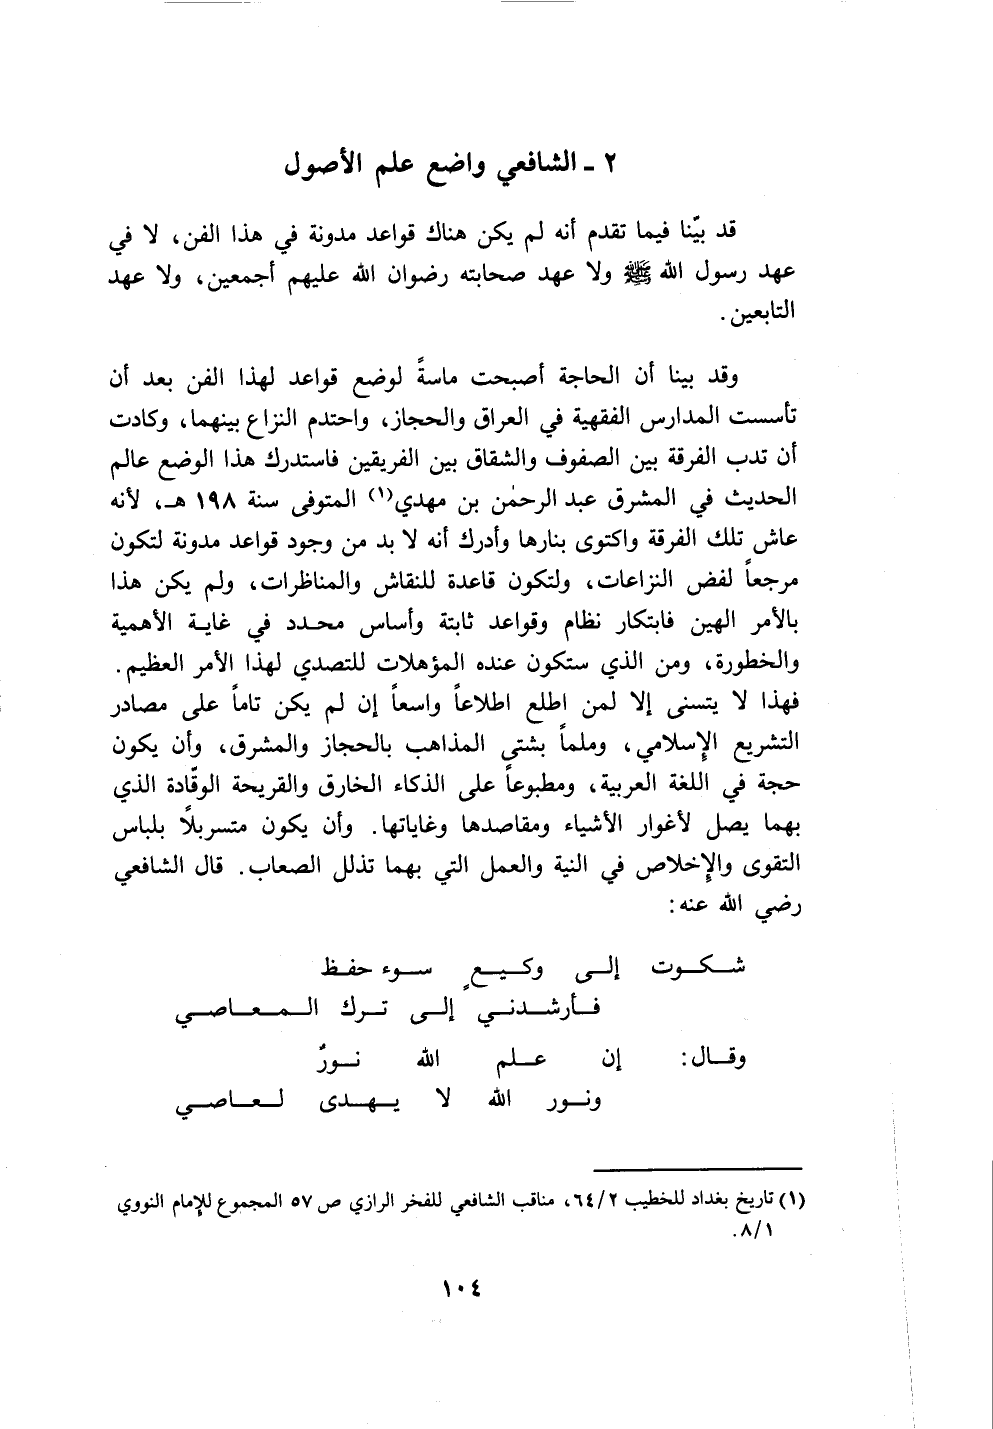 ٢ - الشافعي واضع علم الأصول
قد بيّنا فيما تقدم أنه لم يكن هناك قواعد مدونة في هذا الفن، لا في
عهد رسول الله ﷺ ولا عهد صحابته رضوان الله عليهم أجمعين، ولا عهد
التابعين.
وقد بينا أن الحاجة أصبحت ماسةً لوضع قواعد لهذا الفن بعد أن
تأسست المدارس الفقهية في العراق والحجاز، واحتدم النزاع بينهما، وكادت
أن تدب الفرقة بين الصفوف والشقاق بين الفريقين فاستدرك هذا الوضع عالم
الحديث في المشرق عبد الرحمٰن بن مهدي(١) المتوفى سنة ١٩٨ هـ، لأنه
عاش تلك الفرقة واكتوى بنارها وأدرك أنه لا بد من وجود قواعد مدونة لتكون
مرجعاً لفض النزاعات، ولتكون قاعدة للنقاش والمناظرات، ولم يكن هذا
بالأمر الهين فابتكار نظام وقواعد ثابتة وأساس محدد في غاية الأهمية
والخطورة، ومن الذي ستكون عنده المؤهلات للتصدي لهذا الأمر العظيم.
فهذا لا يتسنى إلا لمن اطلع اطلاعاً واسعاً إن لم يكن تاماً على مصادر
التشريع الإسلامي، وملماً بشتى المذاهب بالحجاز والمشرق، وأن يكون
حجة في اللغة العربية، ومطبوعاً على الذكاء الخارق والقريحة الوقّادة الذي
بهما يصل لأغوار الأشياء ومقاصدها وغاياتها. وأن يكون متسربلاً بلباس
التقوى والإخلاص في النية والعمل التي بهما تذلل الصعاب. قال الشافعي
رضي الله عنه:
شكوت إلى وكيعٍ سوء حفظ
فأرشدني إلى ترك المعاصي
وقال: إن علم الله نورٌ
ونور الله لا يهدى لعاصي
(١) تاريخ بغداد للخطيب ٦٤/٢، مناقب الشافعي للفخر الرازي ص ٥٧ المجموع للإمام النووي
٨/١.
١٠٤